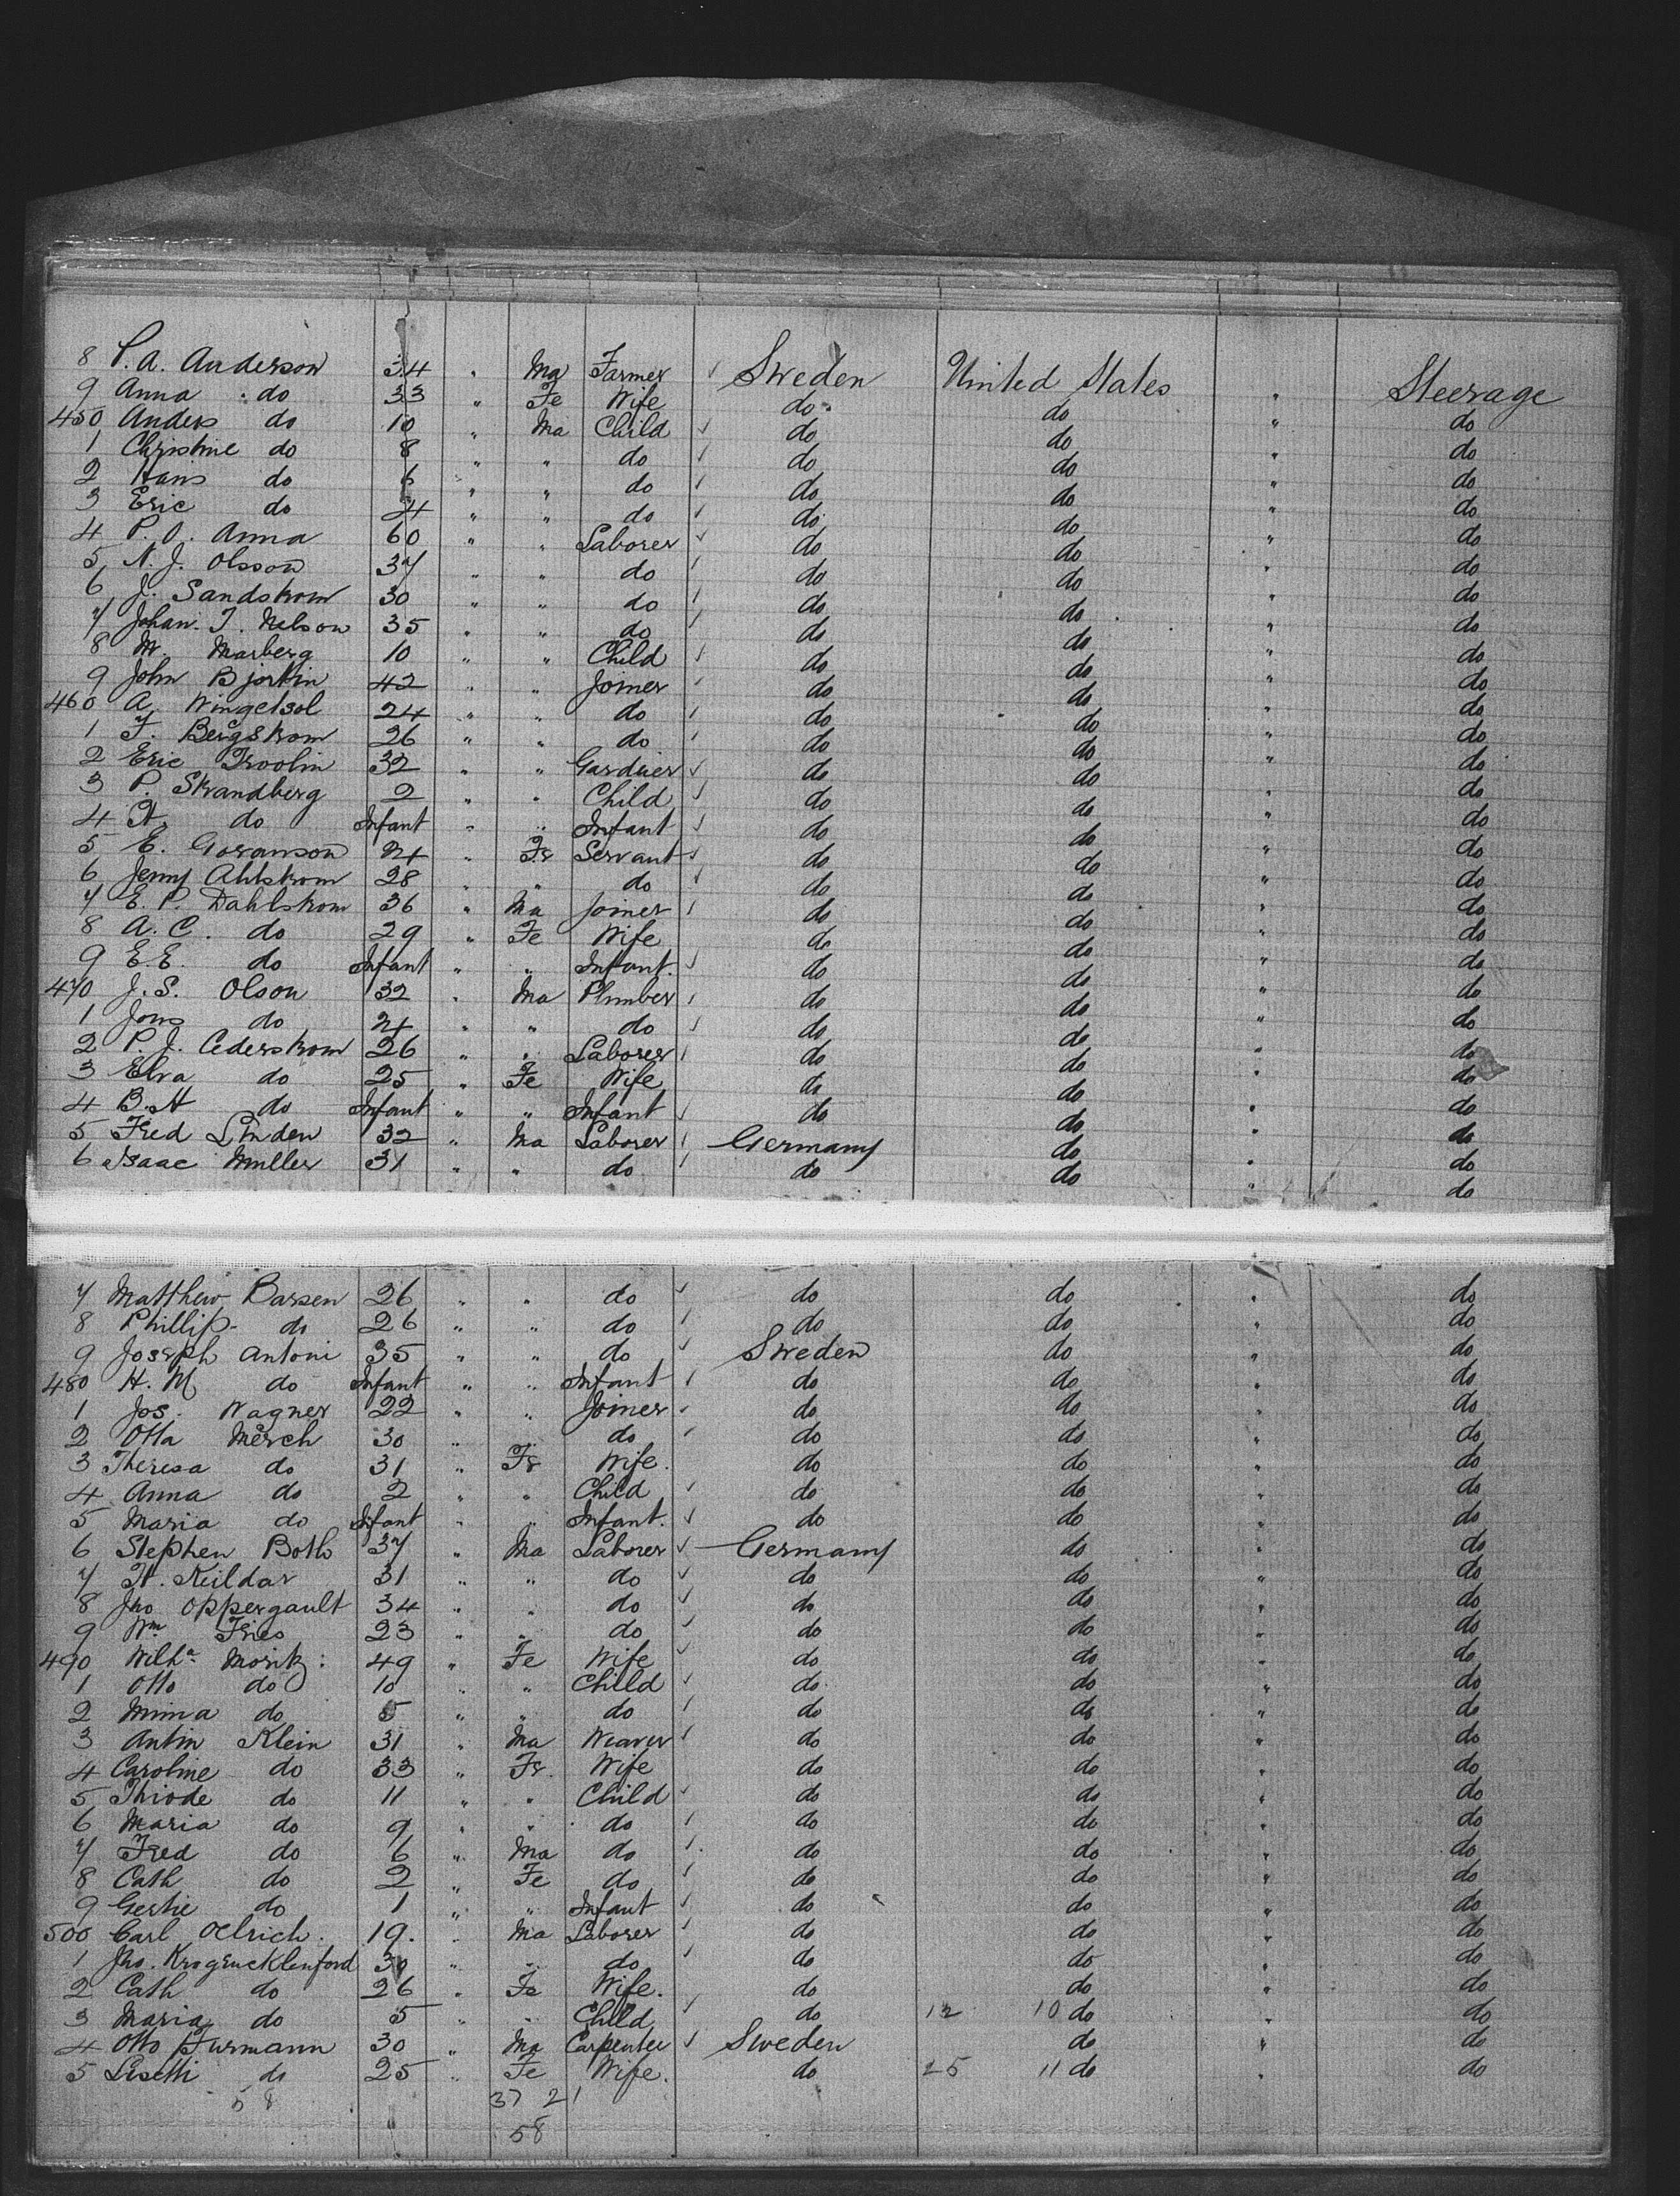 8 P. A. Anderson 34 " Ma Farmer ✓ Sweden United States " Steerage
9 Anna do 33 " Fe Wife do do " do
450 Anders do 10 " Ma Child ✓ do do " do
1 Christine do 8 " " do ✓ do do " do
2 Hans do 6 " " do ✓ do do " do
3 Eric do 4 " " do ✓ do do " do
4 P. O. Anna 60 " " Laborer ✓ do do " do
5 N. J. Olsson 37 " " do ✓ do do " do
6 J. Sandstrom 30 " " do ✓ do do " do
7 Johan. T. Nelson 35 " " do ✓ do do " do
8 M. Marberg 10 " " Child ✓ do do " do
9 John Bjorkin 42 " " Joiner ✓ do do " do
460 A. Wingelsol 24 " " do ✓ do do " do
1 F. Bergstrom 26 " " do ✓ do do " do
2 Eric Troolin 32 " " Gardner ✓ do do " do
3 P. Strandberg 2 " " Child ✓ do do " do
4 do Infant " " Infant ✓ do do " do
5 E. Goranson 21 " Fe Servant ✓ do do " do
6 Jenny Ahlstrom 28 " " do ✓ do do " do
7 E. P. Dahlstrom 36 " Ma Joiner ✓ do do " do
8 A. C. do 29 " Fe Wife do do " do
9 E. E. do Infant " " Infant. ✓ do do " do
470 J. S. Olson 32 " Ma Plumber ✓ do do " do
1 Jons do 21 " " do ✓ do do " do
2 P. J. Cederstrom 26 " " Laborer ✓ do do " do
3 Elva do 25 " Fe Wife do do " do
4 B. H do Infant " " Infant ✓ do do " do
5 Fred Linden 32 " Ma Laborer ✓ Germany do " do
6 Isaac Muller 31 " " do ✓ do do " do
7 Matthew Bassen 26 " " do ✓ do do " do
8 Phillip do 26 " " do ✓ do do " do
9 Joseph Antoni 35 " " do ✓ Sweden do " do
480 H. M do Infant " " Infant ✓ do do " do
1 Jos. Wagner 22 " " Joiner ✓ do do " do
2 Otta Mersch 30 " " do ✓ do do " do
3 Theresa do 31 " Fe Wife. do do " do
4 Anna do 2 " " Child ✓ do do " do
5 Maria do Infant " " Infant. ✓ do do " do
6 Stephen Both 37 " Ma Laborer ✓ Germany do " do
7 H. Keildar 31 " " do ✓ do do " do
8 Jno Oppergault 34 " " do ✓ do do " do
9 Wm Fries 23 " " do ✓ do do " do
490 Wilha Moritz 49 " Fe Wife ✓ do do " do
1 Otto do 10 " " Child ✓ do do " do
2 Mina do 5 " " do ✓ do do " do
3 Antin Klein 31 " Ma Weaver ✓ do do " do
4 Caroline do 33 " Fe. Wife do do " do
5 Thiode do 11 " " Child ✓ do do " do
6 Maria do 9 " " do ✓ do do " do
7 Fred do 6 " Ma do ✓ do do " do
8 Cath do 2 " Fe do ✓ do do " do
9 Gertie do 1 " " Infant ✓ do do " do
500 Carl Oelrich. 19. " Ma Laborer ✓ do do " do
1 Jno. Krogrucklenford 30 " " do ✓ do do " do
2 Cath do 26 " Fe Wife. do do " do
3 Maria do 5 " " Child ✓ do 12 10 do " do
4 Otto Furmann 30 " Ma Carpenter ✓ Sweden do " do
5 Lisetti do 25 " Fe Wife. do 25 11 do " do
58 37 21
58